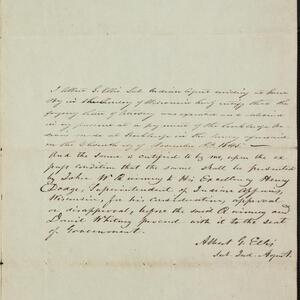 I Albert G. Ellis Sub Indian Agent residing at Green
Bay in the Territory of Wisconsin hereby certify that the
foregoing of Attorney was executed and
in my presence at a payment of the Stockbridge In-
dians made at Stockbridge in the Territory aforesaid
on the day of November A.D. 1845.—
And the same is certified to by me, upon the ex-
press condition that the same shall be presented
by John W. Quinney to His Excellency Henry
Dodge, Superintendent of Indian Affairs,
Wisconsin, for his consideration, approval
or disapproval, before the said Quinney and
Daniel Whitney proceed with it to the seat
of Government.
Albert G. Ellis
Sub. Ind. Agent.